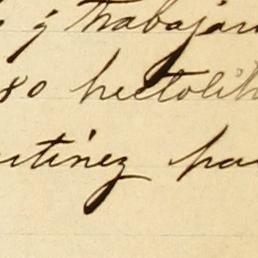 y trabajan
80 hectolit
rtinez pa